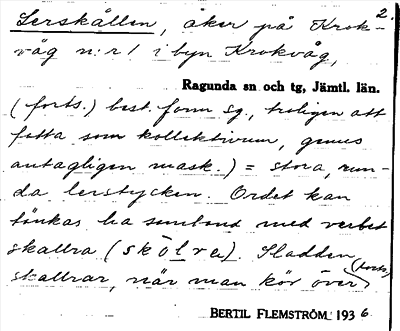 2.
Lerskållen, åker på Krok-
våg n:r 1 i byn Krokvåg,
Ragunda sn och tg, Jämtl. län.
(forts.) best. form sg., troligen att
fatta som kollektivum, genus
antagligen mask.) = stora, run-
da lerstycken. Ordet kan
tänkas ha samband med verbet
skallra (skolra). Sladden
skallrar, när man kör över (forts.)
BERTIL FLEMSTRÖM 1936.